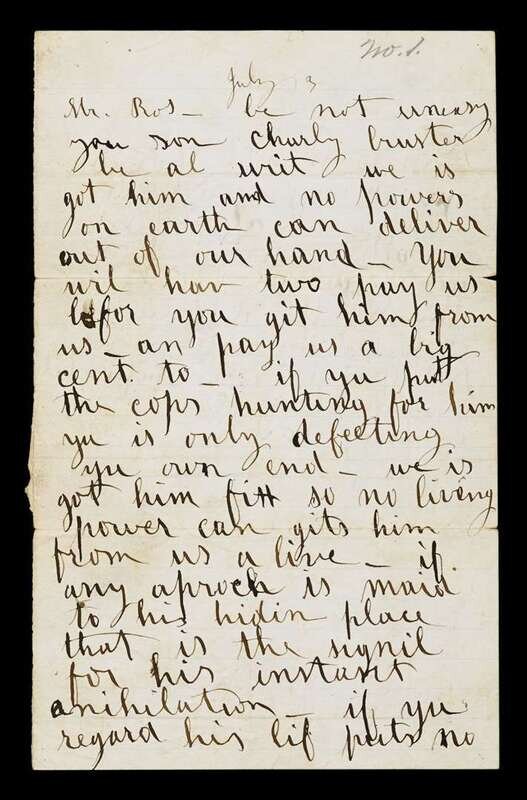 No. 1.
July 3
Mr. Ros— be not uneasy
you son charly bruster
be al writ we is
got him and no powers
on earth can deliver
out of our hand— You
wil hav two pay us
befor you git him from
us— an pay us a big
cent to— if yu put
the cops hunting for him
yu is only defeeting
yu own end— we is
got him fitt so no living
power can gits him
from us a live— if
any aproch is maid
to his hidin place
that is the signil
for his instant
anihilation— if yu
regard his lif puts no